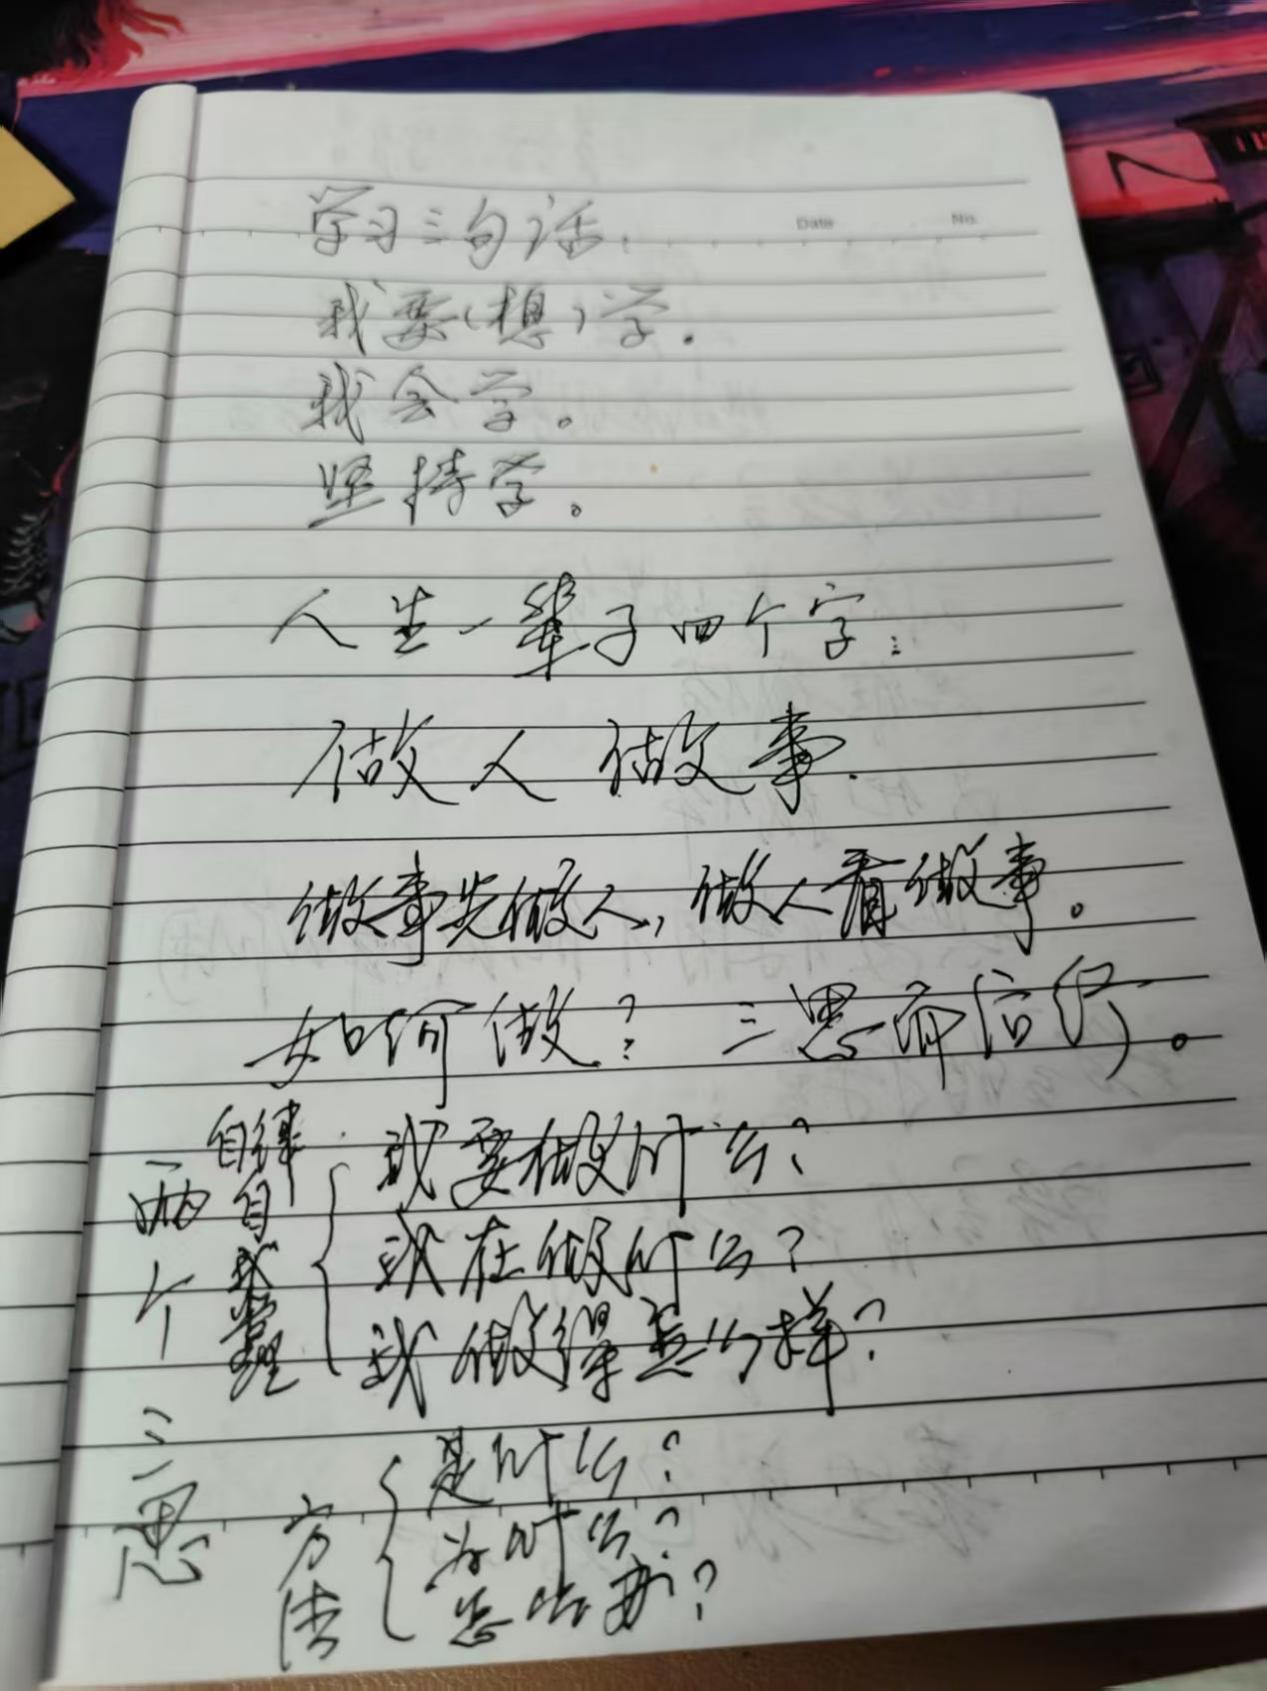 Date No
学习三句话:
我要(想)学。
我会学。
坚持学。
人生一辈子四个字:
做人 做事.
做事先做人,做人看做事。
如何做?三思而后行。
两个三思
自律 自我管理
我要做什么?
我在做什么?
我做得怎么样?
方法
是什么?
为什么?
怎么办?